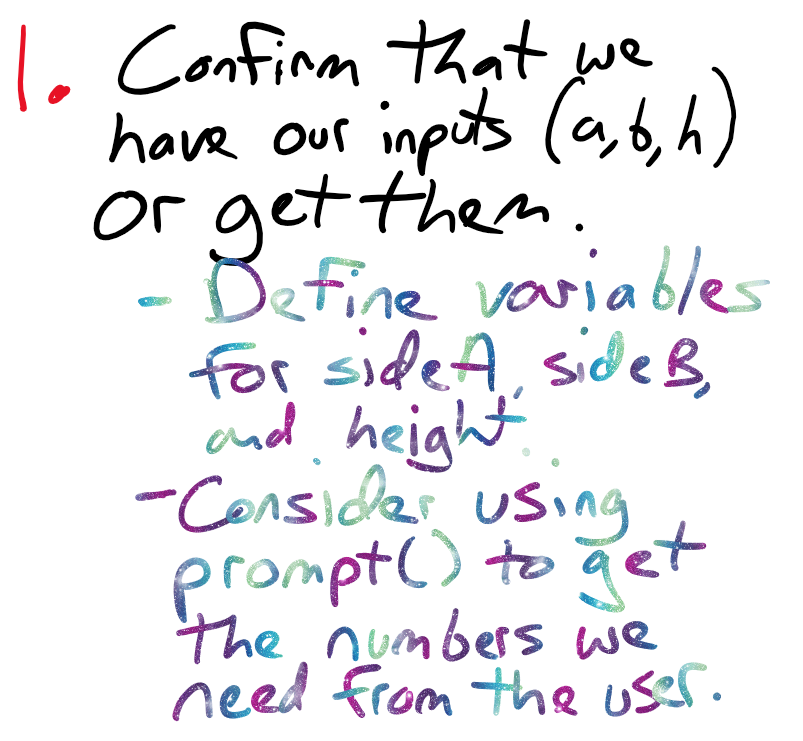 1. Confirm that we
have our inputs (a, b, h)
or get them.
- Define variables
for sideA, sideB,
and height.
- Consider using
prompt() to get
the numbers we
need from the user.